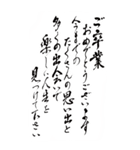 ご卒業
おめでとうございます
今までの
たくさんの思い出と
多くの出会いで
楽しい人生を
見つけて下さい